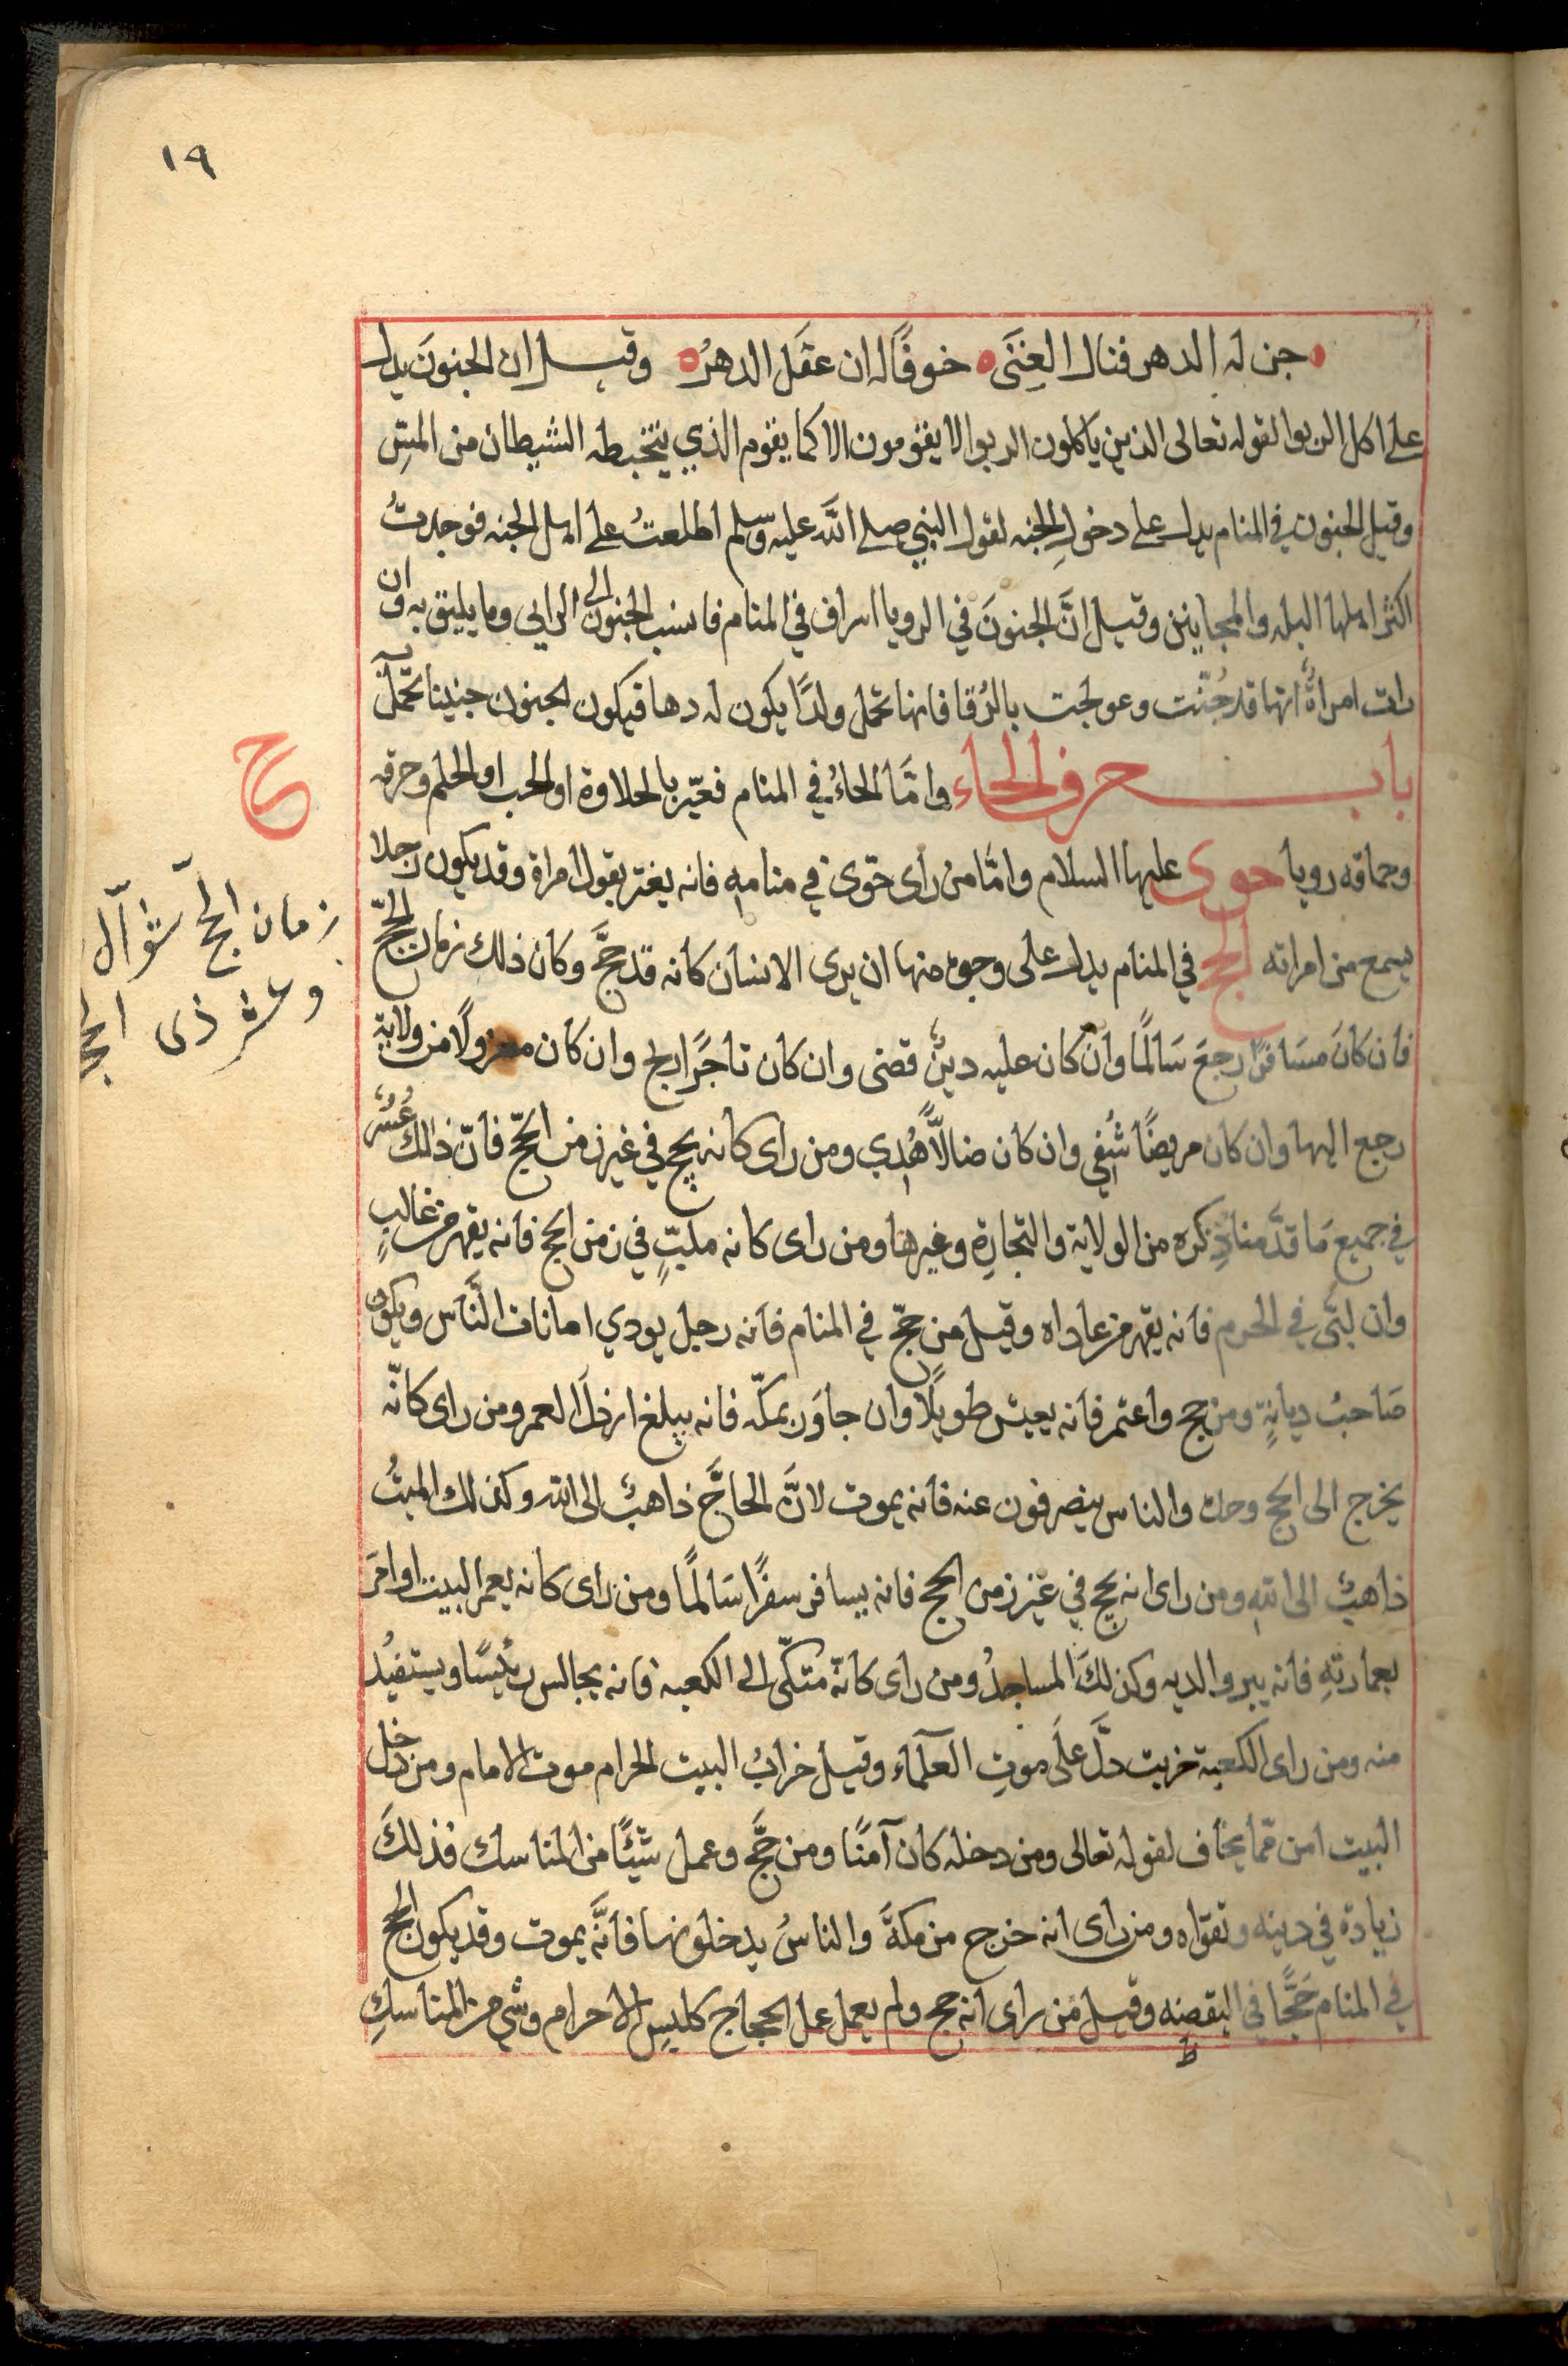 ١٩
جن له الدهر فنال الغِنَى خوفًا له ان عقَل الدهرُ وقيل ان الجنونَ يدل
على اكل الربوا لقوله تعالى الذين ياكلون الربوا لا يقومون الا كما يقوم الذي يتخبطه الشيطان من المسِّ
وقيل الجنون في المنام يدل على دخولِ الجنه لقول النبي صلى الله عليه وسلم اطلعتُ على اهل الجنه فوجدتُ
اكثر اهلها البله والمجانين وقيل انَّ الجنونَ في الرويا اسراف في المنام فانسب الجنون الى الرايى وما يليق به وان
رات امراةٌ انها قد جُنّت وعولجت بالرُقا فانها تحمل ولدًا يكون له دها فيكون الجنون جنينا تحمل به
باب حرف الحاء وامَّا الحاءُ في المنام فعبّر بالحلاوة او الحب او الحلم وحرقه
وحماقه رويا حوى عليها السلام وامَّا من راى حوّى في منامهِ فانه يغتر بقول امراة وقد يكون رجلا
يسمع من امراته الحج في المنام يدل على وجوه منها ان يرى الانسان كانه قد حجَّ وكان ذلك زمان الحجّ
فان كانَ مسَافرًا رجعَ سَالمًا وان كان عليه دينٌ قضى وان كان تاجرًا ربح وان كان معزولًا من ولاية
رجع اليها وان كان مريضًا شُفي وان كان ضالًّا هُدي ومن راى كانه يحج في غير زمن الحَجّ فانّ ذالك عُسْر
في جميع مَا قدَّمنا ذِكره من الولاية والتجارة وغيرها ومن راى كانه ملبّيٍ في زمن الحج فانه يقهر من غالبٍ
وان لبَّى في الحرم فانه يقهر من عاداه وقيل من حجّ في المنام فانه رجل يودي امانات النَّاس ويكون
صَاحبُ ديانةٍ ومن حج واعتمر فانه يعيش طويلًا وان جاوَر بمكّه فانه يبلغ ارذلَ العمر ومن راى كانّه
يخرج الى الحج وحده والناس ينصرفون عنه فانه يموت لانَّ الحاجَّ ذاهبٌ الى الله وكذلك الميتُ
ذاهبٌ الى اللهِ ومن راى انه يحج في غير زمن الحج فانه يسافر سفرًا سَالمًا ومن راى كانه يعمر البيت او امرَ
بعمارتهِ فانه يبر والديه وكذلكَ المساجدُ ومن راى كانّه متكّى الى الكعبه فانه يجالس رئيسًا ويستفيُد
منه ومن راى الكعبة خربت دلَّ علَى موتِ العلَماء وقيل خرابُ البيت الحرام موت الامام ومن دخل
البيت امن مّما يخاف لقوله تعالى ومن دخله كان آمنًا ومن حَجَّ وعمل شيئًا من المناسك فذلكَ
زيادة في دينه وتقواه ومن راى انه خرج من مكةَ والناسُ يدخلونها فانَّه يموت وقد يكون الحج
في المنام حَجًّا في اليقضه وقيل مَن راى انه حج ولم يعمل عمل الحجاج كلبسِ الاحرام وشي من المناسكِ
ظ
ح
زمان الحجّ شوّال
وعشر ذى الحجـ